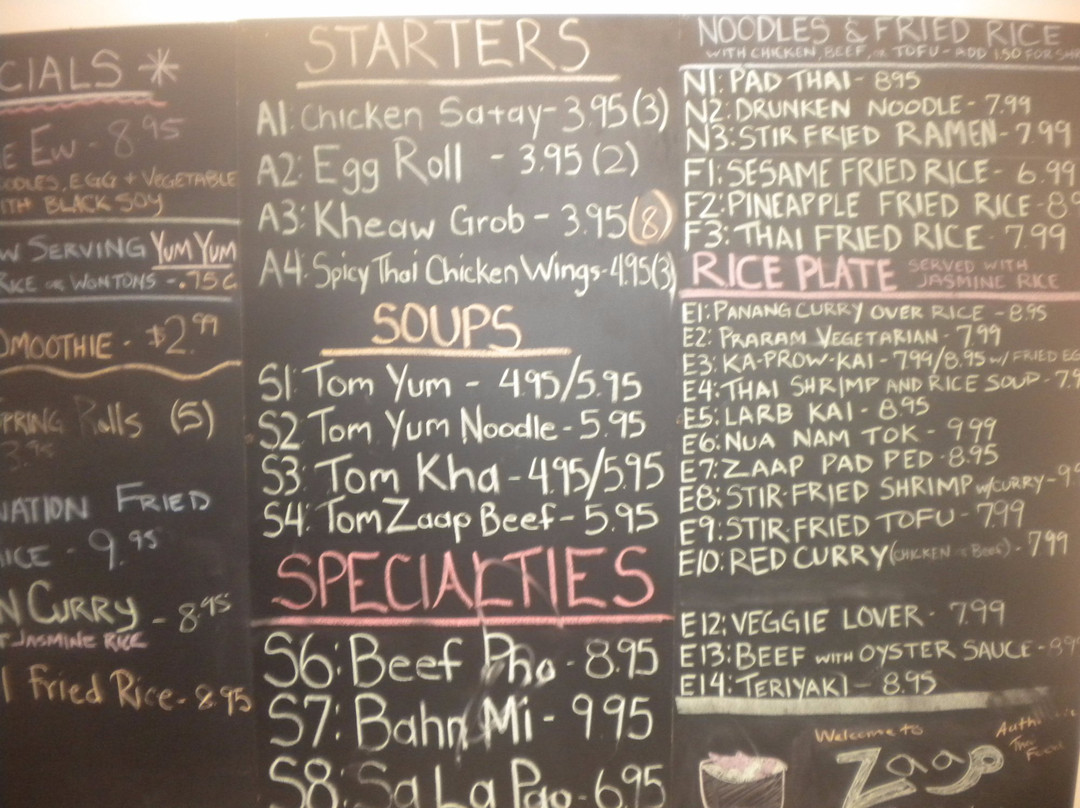 CIALS *
Ew - 8.95
EGG + VEGETABLE
BLACK SOY
SERVING YUM YUM
RICE OR WONTONS - .75¢
MOOTHIE - $2.99
PRING Rolls (5)
3.95
NATION FRIED
ICE - 9.95
N CURRY - 8.95
JASMINE RICE
Fried Rice - 8.95
STARTERS
A1: Chicken Satay - 3.95 (3)
A2: Egg Roll - 3.95 (2)
A3: Kheaw Grob - 3.95 (8)
A4: Spicy Thai Chicken Wings - 4.95 (3)
SOUPS
S1: Tom Yum - 4.95/5.95
S2: Tom Yum Noodle - 5.95
S3: Tom Kha - 4.95/5.95
S4: Tom Zaap Beef - 5.95
SPECIALTIES
S6: Beef Pho - 8.95
S7: Bahn Mi - 9.95
S8: Sa La Pao - 6.95
NOODLES & FRIED RICE
WITH CHICKEN, BEEF, OR TOFU - ADD 1.50 FOR SH
N1: PAD THAI - 8.95
N2: DRUNKEN NOODLE - 7.99
N3: STIR FRIED RAMEN - 7.99
F1: SESAME FRIED RICE - 6.99
F2: PINEAPPLE FRIED RICE - 8
F3: THAI FRIED RICE - 7.99
RICE PLATE SERVED WITH JASMINE RICE
E1: PANANG CURRY OVER RICE - 8.95
E2: PRARAM VEGETARIAN - 7.99
E3: KA-PROW-KAI - 7.99/8.95 W/ FRIED EG
E4: THAI SHRIMP AND RICE SOUP - 7.9
E5: LARB KAI - 8.95
E6: NUA NAM TOK - 9.99
E7: ZAAP PAD PED - 8.95
E8: STIR-FRIED SHRIMP W/CURRY - 9
E9: STIR-FRIED TOFU - 7.99
E10: RED CURRY (CHICKEN OR BEEF) - 7.99
E12: VEGGIE LOVER - 7.99
E13: BEEF WITH OYSTER SAUCE -
E14: TERIYAKI - 8.95
Welcome to
Zaap
Thai
Food